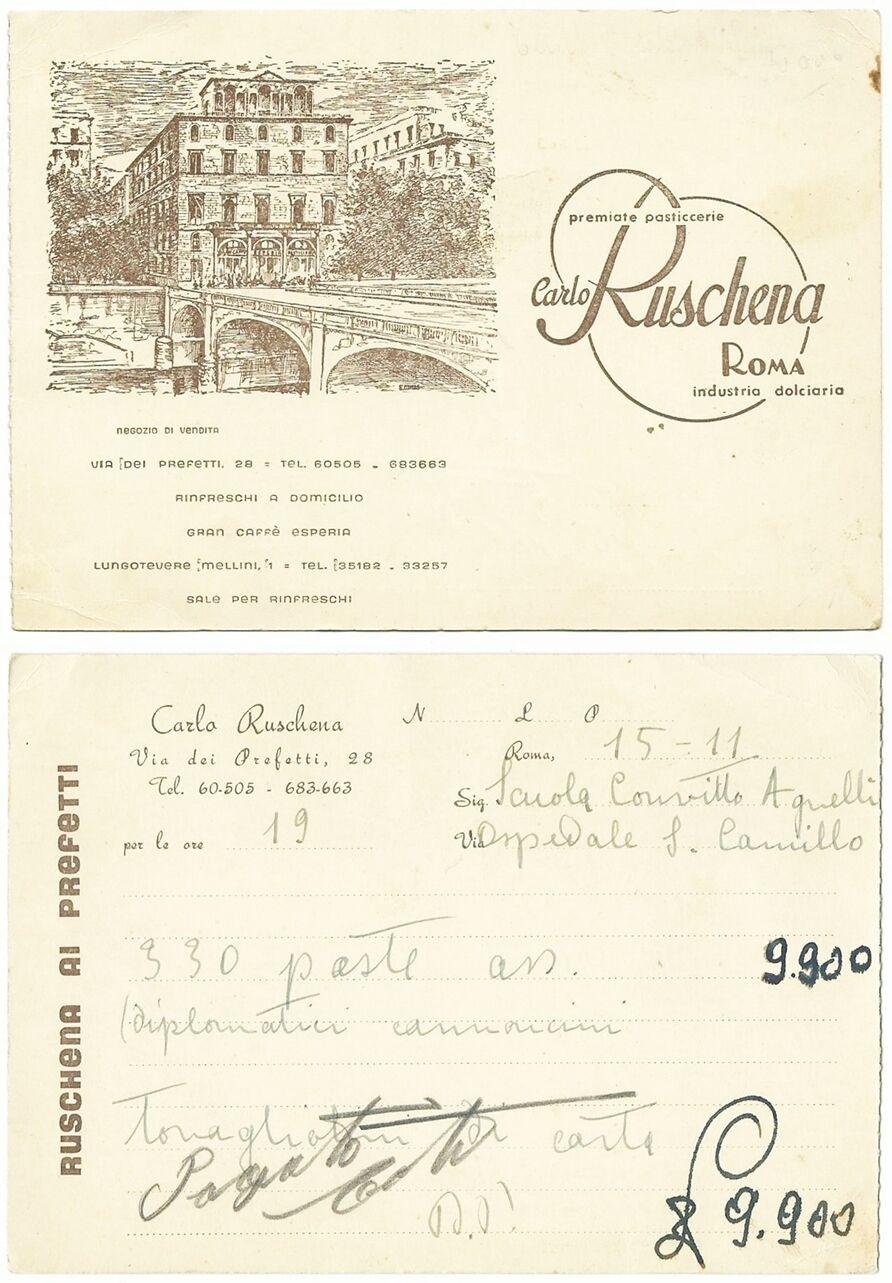 premiate pasticcerie
Carlo Ruschena
ROMA
industria dolciaria
NEGOZIO DI VENDITA
VIA DEI PREFETTI, 28 = TEL. 60505 - 683663
RINFRESCHI A DOMICILIO
GRAN CAFFÈ ESPERIA
LUNGOTEVERE MELLINI, 1 = TEL. 35182 - 33257
SALE PER RINFRESCHI
RUSCHENA AI PREFETTI
Carlo Ruschena
Via dei Prefetti, 28
Tel. 60-505 - 683-663
N L P
Roma, 15-11
Sig. Scuola Convitto Agnelli
Via Ospedale S. Camillo
per le ore 19
330 paste ass. 9.900
(diplomatici cannoncini
Tovagliolini di carta
Pagato
£ 9.900